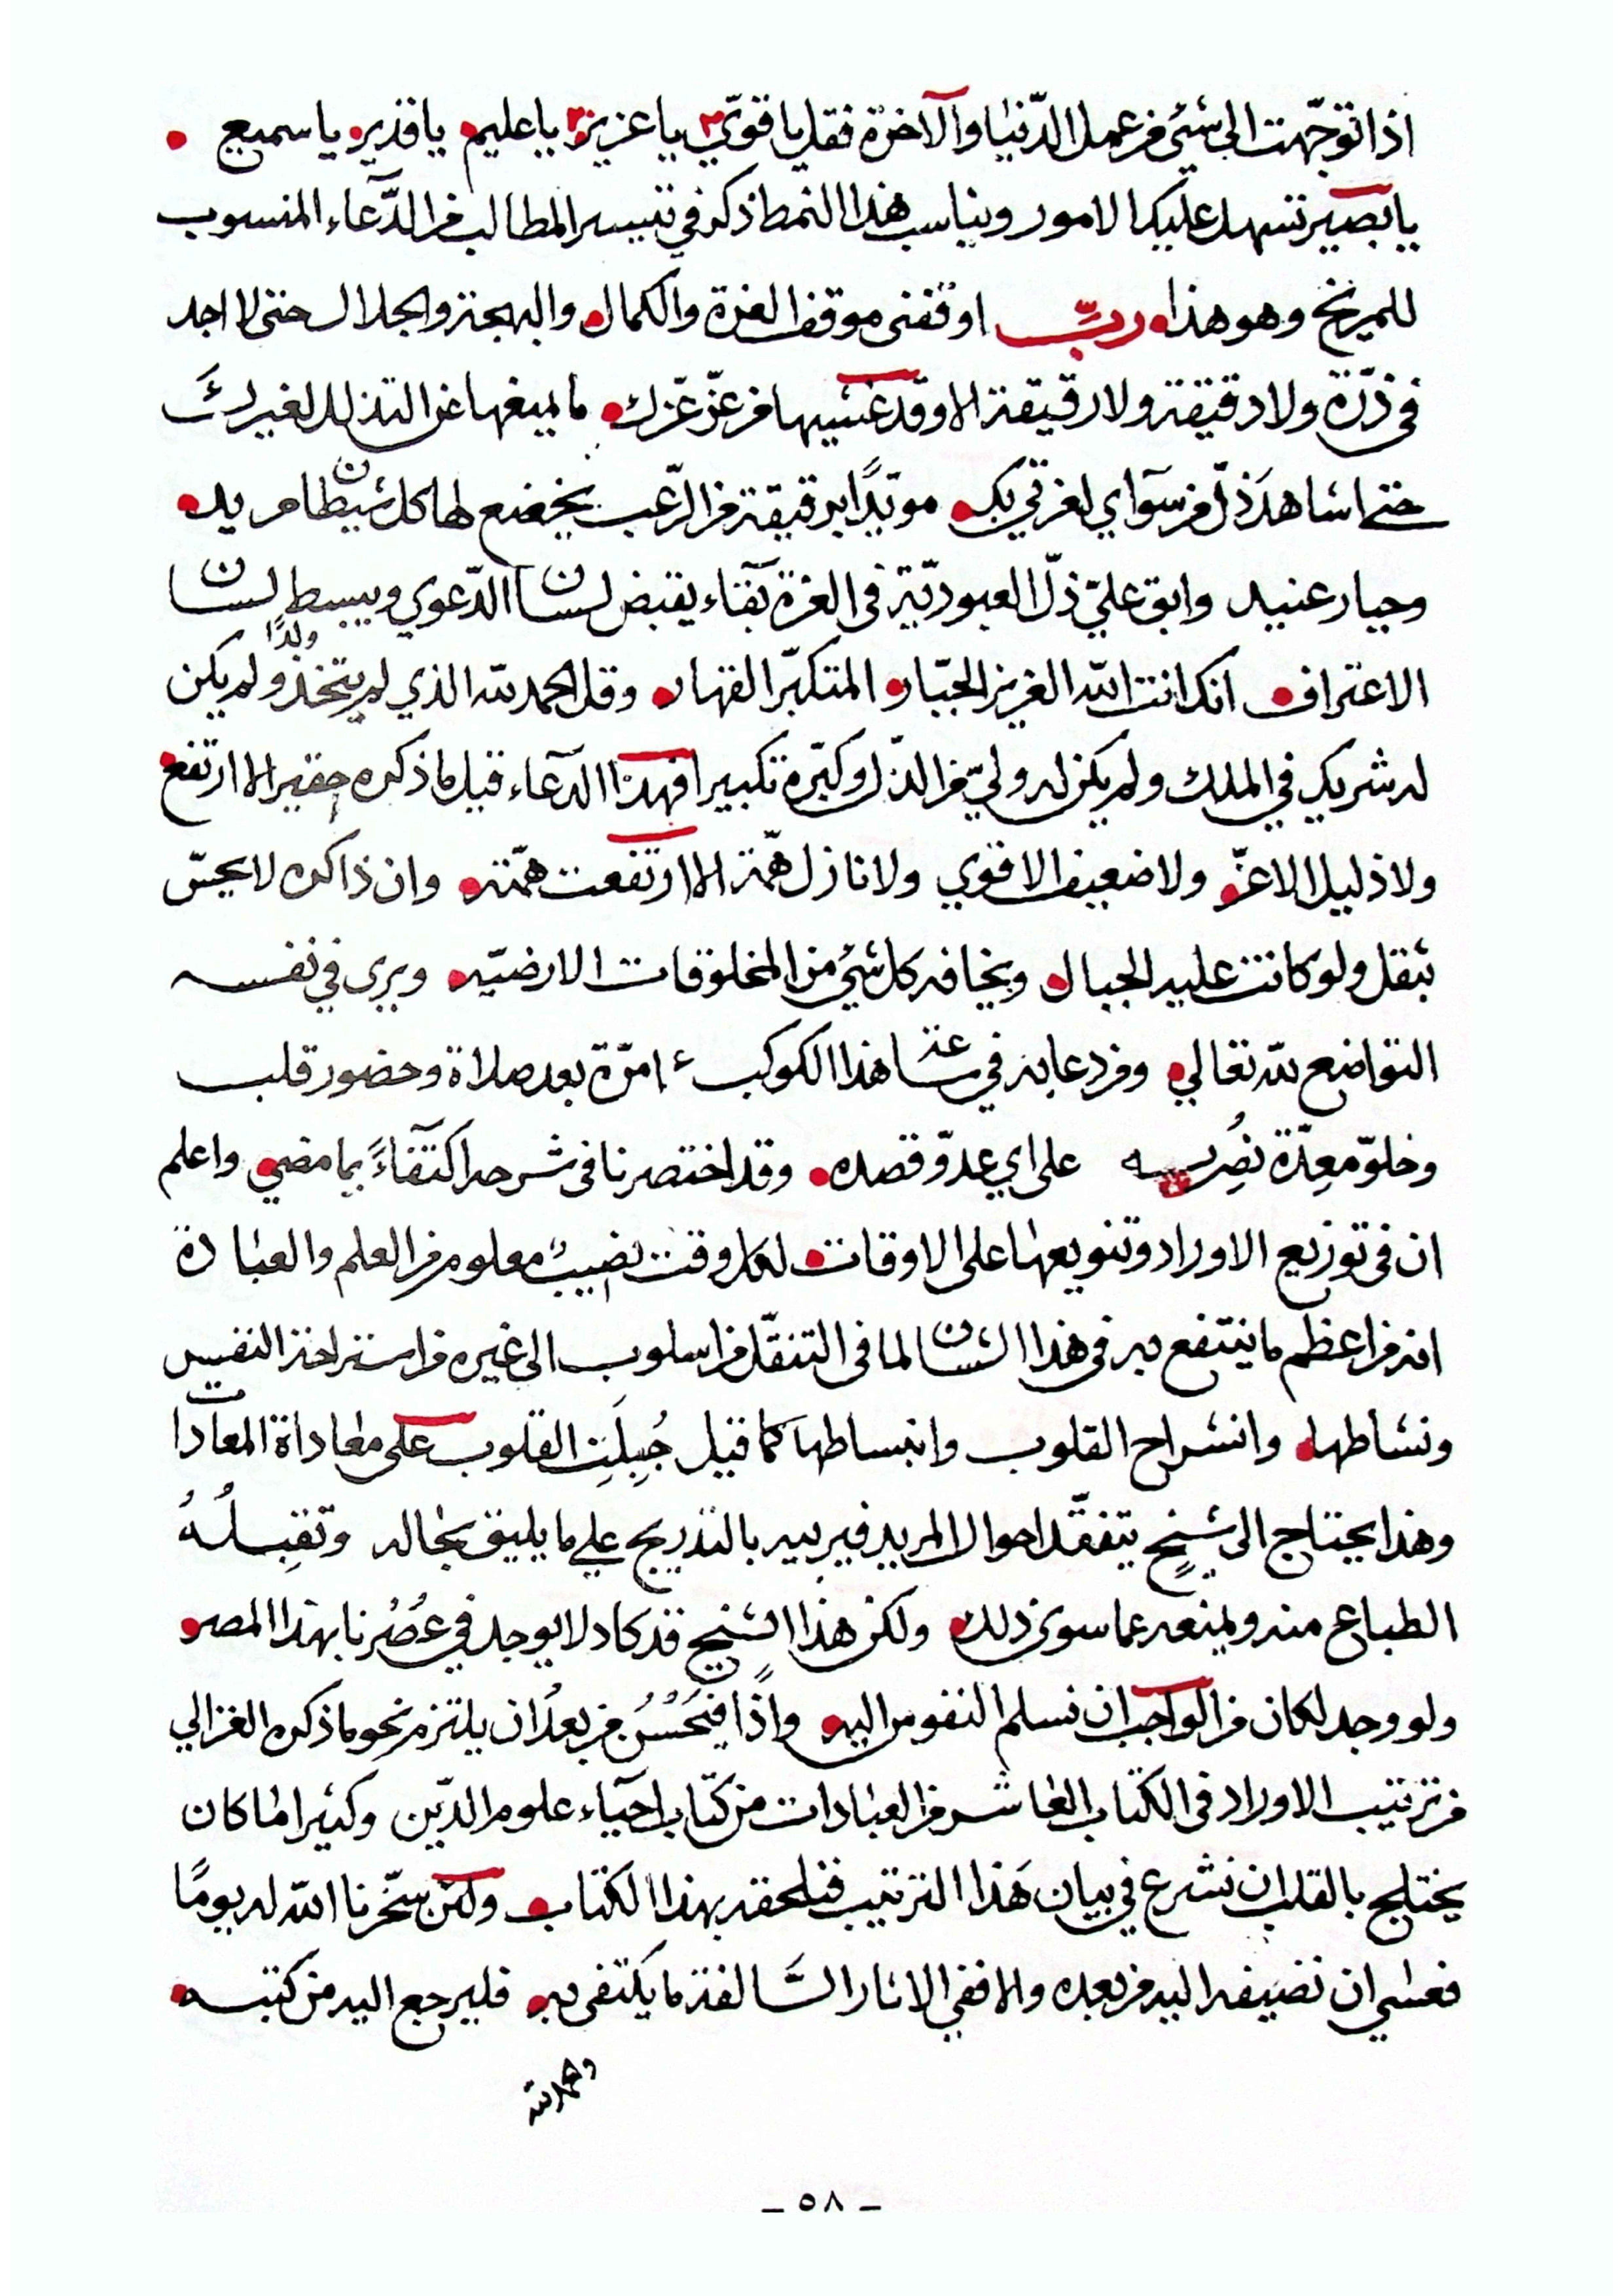 اذا توجّهت الى شيئ من عمل الدّنيا والآخرة فقل يا قويّ ٣ يا عزيز ٣ يا عليم يا قدير يا سميع
يا بصير تسهل عليك الامور ويناسب هذا النمط ذكر في تيسير المطالب من الدّعآء المنسوب
للمريخ وهو هذا ربِّ اوقفنى موقف العزة والكمال والبهجة والجلال حتى لا اجد
فى ذرّة ولا دقيقة ولا رقيقة الا وقد غشيها من عزّ عزّك ما يمنعها عن التذلل لغيرك
حتى اشاهد ذلّ من سوآي لعزتي بك مويّدًا برقيقة من الرّعب يخضع لها كل شيطان مريد
وجبار عنيد وابق عليّ ذلّ العبوديّة فى العزة بقآء يقبض لسان الدّعوي ويبسط لسان
الاعتراف انك انت الله العزيز الجبّار المتكبّر القهار وقل الحمد لله الذي لم يتخذ ولدًا ولم يكن
له شريك في الملك ولم يكن له وليّ من الذّل وكبّره تكبيرا فهذا الدّعآء قيل ما ذكره حقير الا ارتفع
ولا ذليل الا عزّ ولا ضعيف الا قوي ولا نازل همّة الا ارتفعت همّته وان ذاكره لا يحسّ
بثقل ولو كانت عليه الجبال ويخافه كل شيئ من المخلوقات الارضيّه ويرى في نفسه
التواضع لله تعالي ومن دعا به في ساعة هذا الكوكب ٤٠ مرّة بعد صلاة وحضور قلب
وخلوّ معدة نصر به على اي عدوّ قصده وقد اختصرنا فى شرحه اكتفآءً بما مضي واعلم
ان فى توزيع الاوراد وتنويعها على الاوقات لكل وقت نصيبٌ معلوم من العلم والعبادة
انه من اعظم ما ينتفع به فى هذا الشان لما فى التنقّل من اسلوب الى غيره من استراحة النفس
ونشاطها وانشراح القلوب وانبساطها كما قيل جُبِلَتِ القلوب على معاداة المعادات
وهذا يحتاج الى شيخٍ يتفقّد احوال المريد فيربيه بالتدريج علي ما يليق بحاله وتقبلُهُ
الطباع منه ويمنعه عما سوى ذلك ولكن هذا الشيخ قد كاد لا يوجد في عصرنا بهذا المصر
ولو وجد لكان من الواجب ان نسلم النفوس اليه واذًا فيَحْسُنُ من بعدُ ان يلتزم نحو ما ذكره الغزالي
من ترتيب الاوراد فى الكتاب العاشر من العبادات من كتاب احيآء علوم الدّين وكثيرا ما كان
يختلج بالقلب ان نشرع في بيان هذا الترتيب فنلحقه بهذا الكتاب ولئن سخّرنا الله له يومًا
فعسي ان نضيفه اليه من بعده والا ففي الاثار السّالفة ما يكتفى به فليرجع اليه من كتبه
والحمد لله
ـ ٥٨ ـ